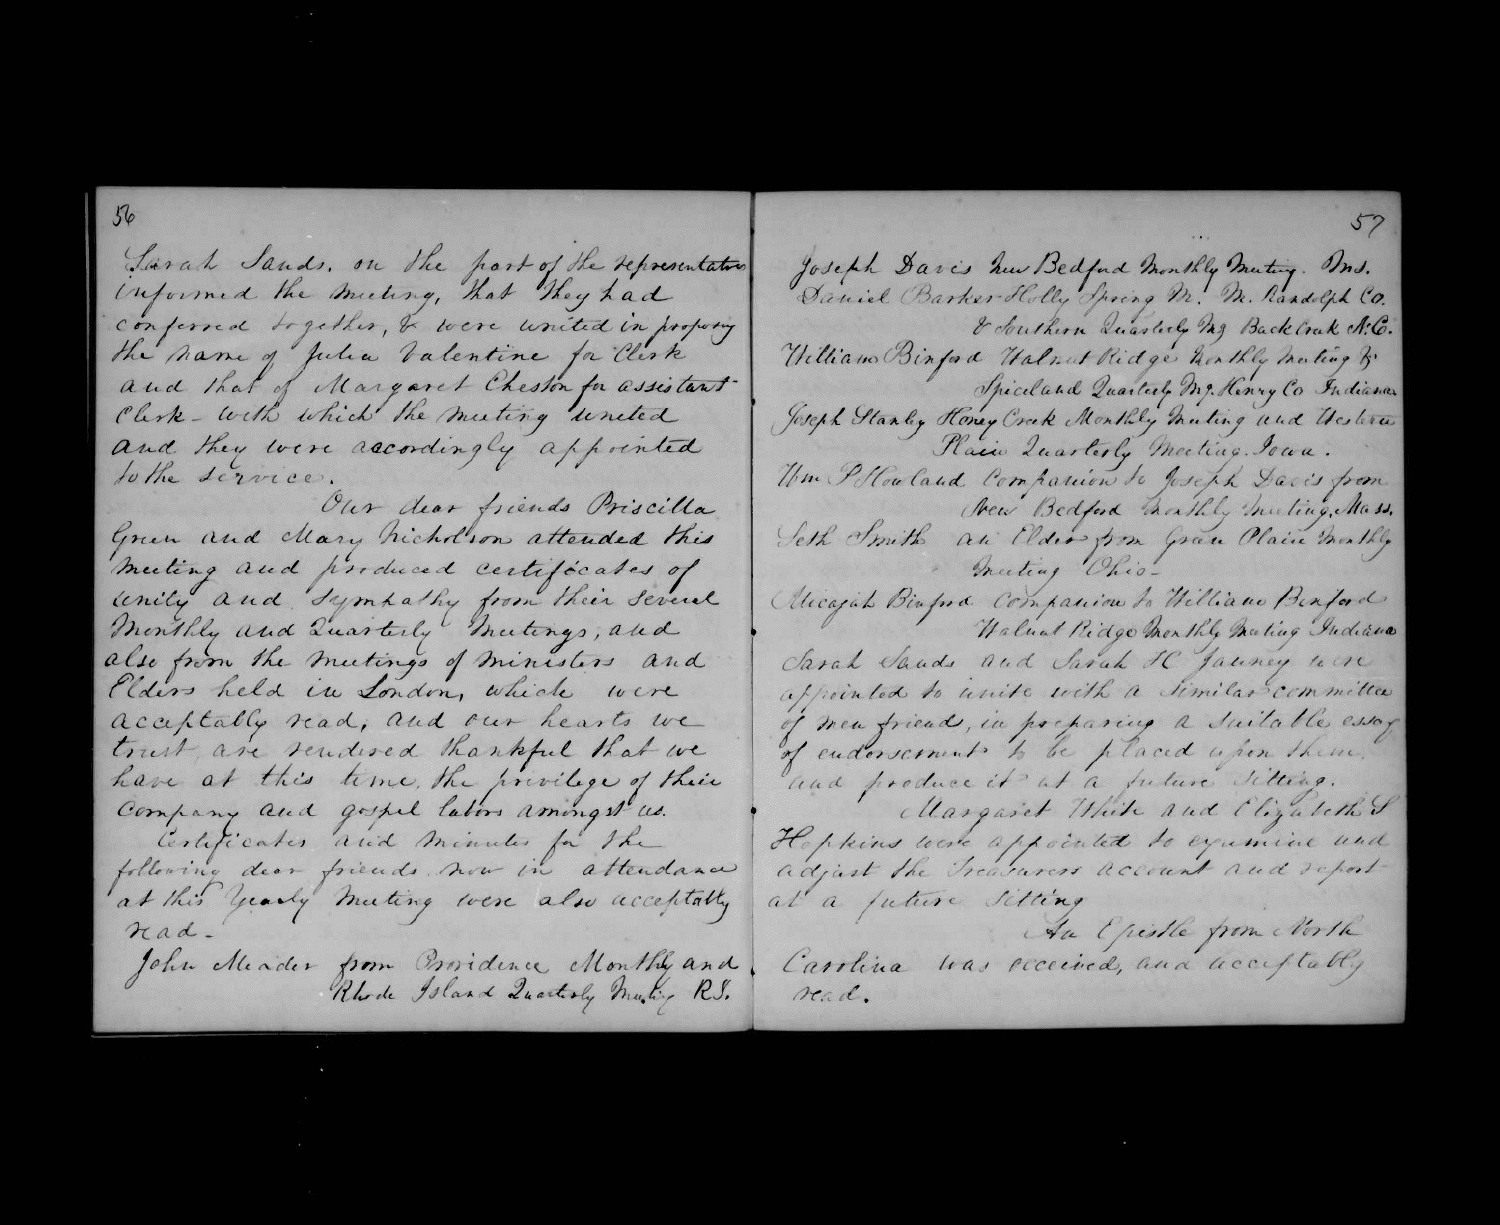 56
Sarah Sands, on the part of the representatives
informed the meeting, that they had
conferred together, & were united in proposing
the name of Julia Valentine for Clerk
and that of Margaret Cheston for assistant
Clerk - with which the meeting united
and they were accordingly appointed
to the service.
Our dear friends Priscilla
Green and Mary Nicholson attended this
meeting and produced certificates of
unity and sympathy from their several
Monthly and Quarterly Meetings, and
also from the meetings of ministers and
Elders held in London, which were
acceptably read, and our hearts we
trust are rendered thankful that we
have at this time, the privilege of their
company and gospel labors amongst us.
Certificates and minutes for the
following dear friends now in attendance
at this Yearly Meeting were also acceptably
read -
John Meader from Providence Monthly and
Rhode Island Quarterly Meeting R.I.
57
Joseph Davis New Bedford Monthly Meeting. Ms.
Daniel Barker Holly Spring M. M. Randolph Co.
& Southern Quarterly Mg Back Creek N.C.
William Binford Walnut Ridge Monthly Meeting &
Spiceland Quarterly Mg. Henry Co Indiana
Joseph Stanley Honey Creek Monthly Meeting and Western
Plain Quarterly Meeting. Iowa.
Wm P Howland Companion to Joseph Davis from
New Bedford Monthly Meeting, Mass.
Seth Smith an Elder from Green Plain Monthly
Meeting Ohio -
Micajah Binford companion to William Binford
Walnut Ridge Monthly Meeting Indiana
Sarah Sands and Sarah H Janney were
appointed to unite with a similar committee
of men friends, in preparing a suitable essay
of endorsements to be placed upon them,
and produce it at a future sitting.
Margaret White and Elizabeth S
Hopkins were appointed to examine and
adjust the Treasurers account and report
at a future sitting
An Epistle from North
Carolina was received, and acceptably
read.